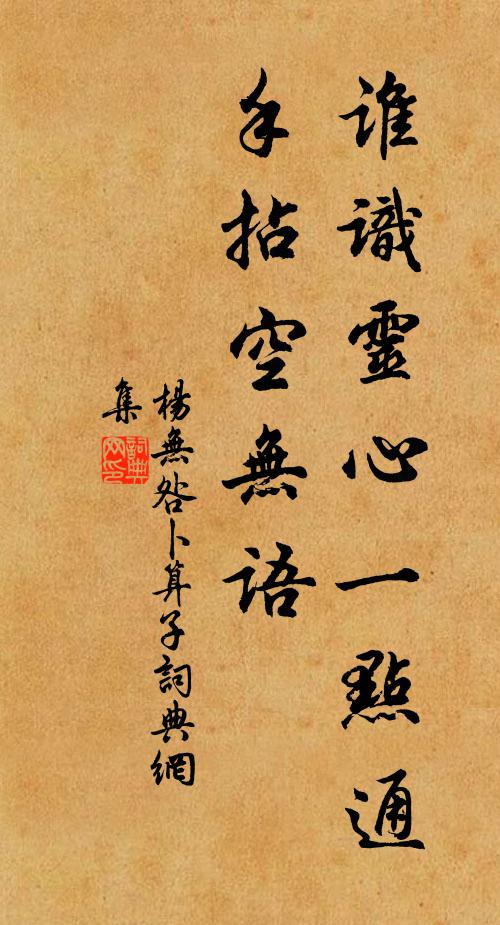 誰識靈心一點通
手拈空無語
楊無咎卜算子詞典網
集
詞典網印